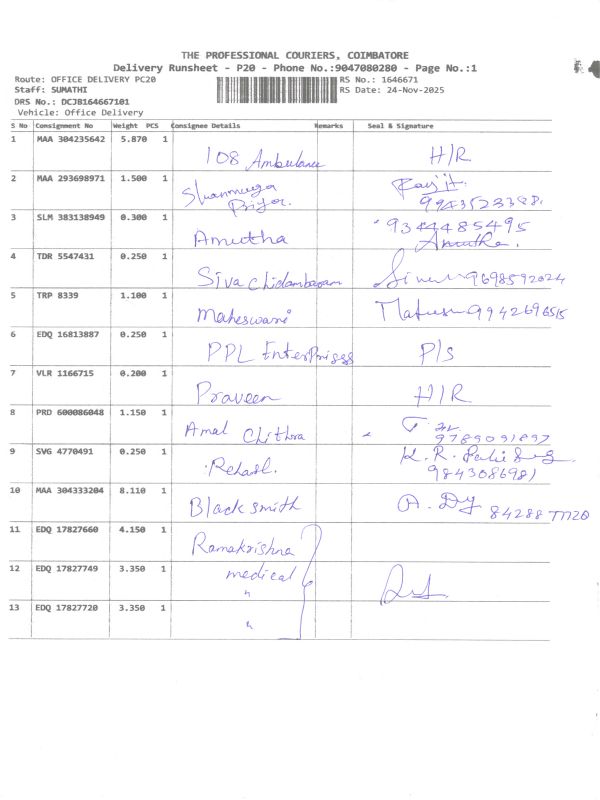 THE PROFESSIONAL COURIERS, COIMBATORE
Delivery Runsheet - P20 - Phone No.:9047080280 - Page No.:1
Route: OFFICE DELIVERY PC20 RS No.: 1646671
Staff: SUMATHI RS Date: 24-Nov-2025
DRS No.: DCJB164667101
Vehicle: Office Delivery
S No Consignment No Weight PCS Consignee Details Remarks Seal & Signature
1 MAA 304235642 5.870 1
108 Ambulance H/R
2 MAA 293698971 1.500 1
Shanmuga
Priya. 9943523388.
3 SLM 383138949 0.300 1 9344485495
Amutha Amutha.
4 TDR 5547431 0.250 1
Siva Chidambaram 9698592024
5 TRP 8339 1.100 1
Maheswari 9942696515
6 EDQ 16813887 0.250 1
PPL EnterPrisss P/s
7 VLR 1166715 0.200 1
Praveen H/R
8 PRD 600086048 1.150 1
Amal Chithra 9789091897
9 SVG 4770491 0.250 1 K. R.
9843086981
10 MAA 304333204 8.110 1
Black smith A. 84288 77720
11 EDQ 17827660 4.150 1
Ramakrishna
12 EDQ 17827749 3.350 1 medical
"
13 EDQ 17827720 3.350 1
"